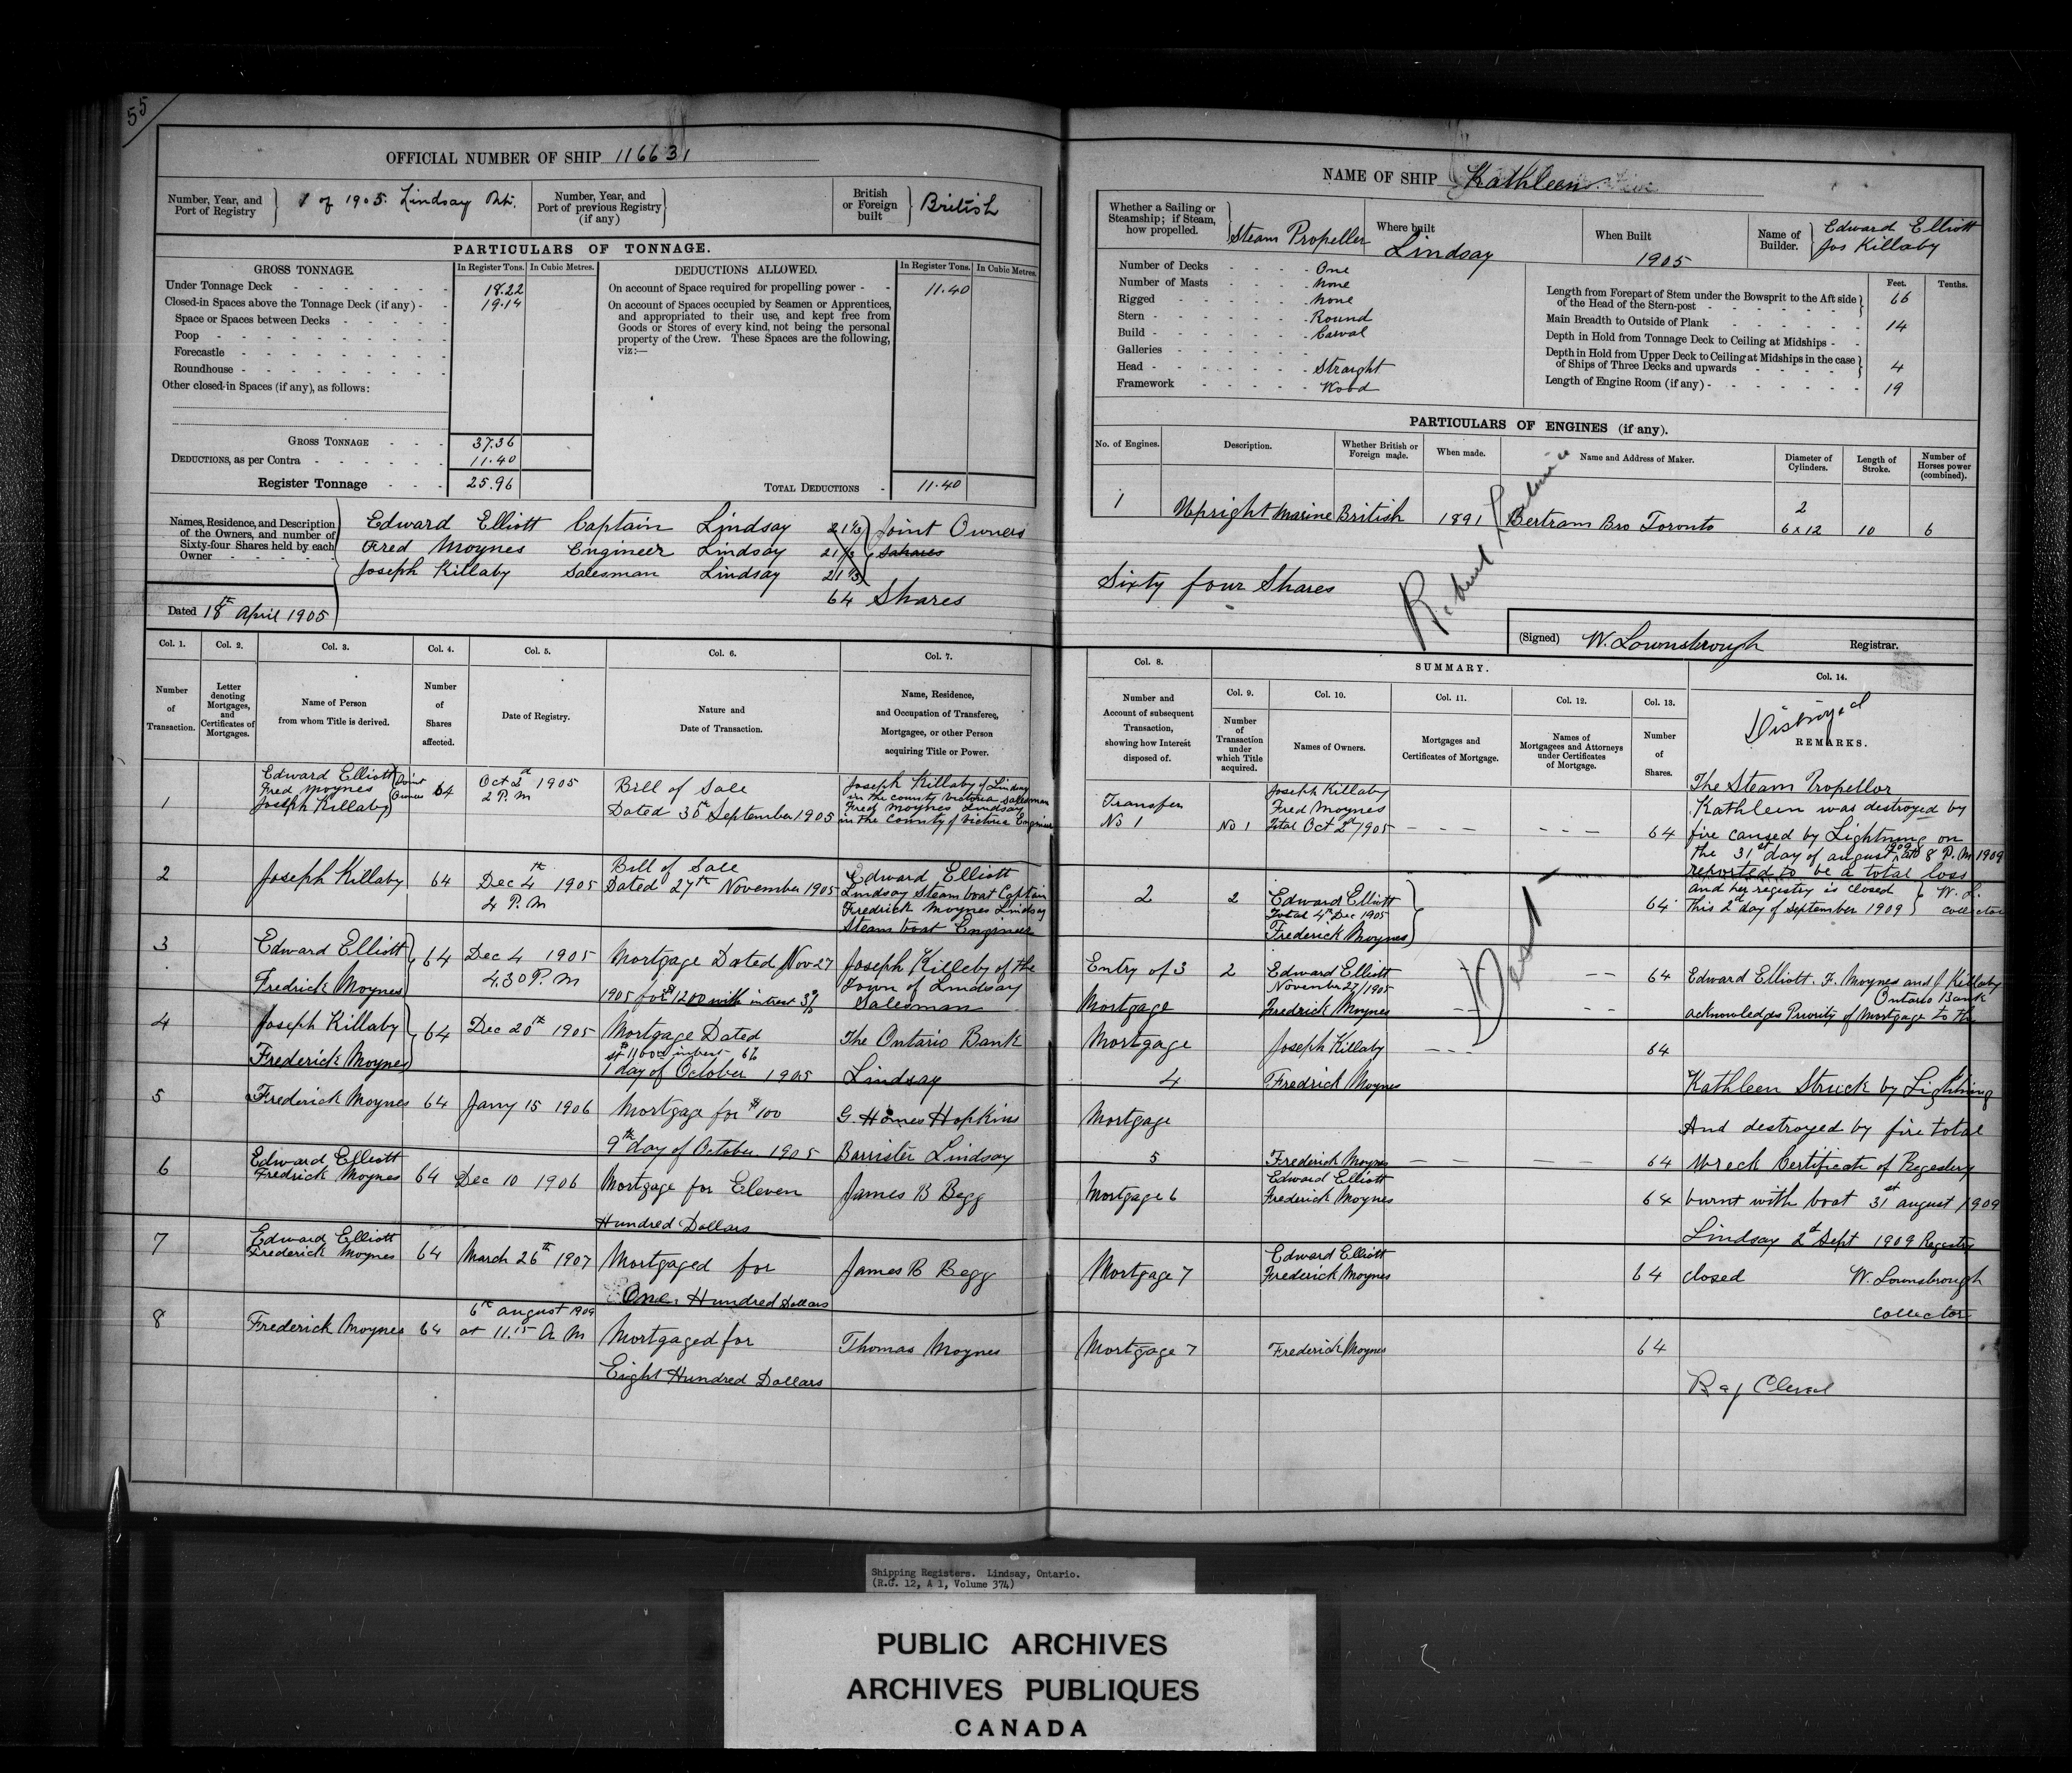 55
OFFICIAL NUMBER OF SHIP 116631
Number, Year, and Port of Registry
1 of 1905. Lindsay Ont.
Number, Year, and Port of previous Registry (if any)
British or Foreign built
British
PARTICULARS OF TONNAGE.
GROSS TONNAGE. In Register Tons. In Cubic Metres.
Under Tonnage Deck 18.22
Closed-in Spaces above the Tonnage Deck (if any) 19.14
Space or Spaces between Decks
Poop
Forecastle
Roundhouse
Other closed-in Spaces (if any), as follows:
GROSS TONNAGE 37.36
DEDUCTIONS, as per Contra 11.40
Register Tonnage 25.96
DEDUCTIONS ALLOWED. In Register Tons. In Cubic Metres.
On account of Space required for propelling power 11.40
On account of Spaces occupied by Seamen or Apprentices,
and appropriated to their use, and kept free from
Goods or Stores of every kind, not being the personal
property of the Crew. These Spaces are the following,
viz:—
TOTAL DEDUCTIONS 11.40
Names, Residence, and Description
of the Owners, and number of
Sixty-four Shares held by each
Owner
Edward Elliott Captain Lindsay 21 1/3 Joint Owners
Fred Moynes Engineer Lindsay 21 1/3
Joseph Killaby Salesman Lindsay 21 1/3
64 Shares
Dated 18th April 1905
NAME OF SHIP Kathleen
Whether a Sailing or Steamship; if Steam, how propelled.
Steam Propeller
Where built Lindsay
When Built 1905
Name of Builder. Edward Elliott
Jos Killaby
Number of Decks One
Number of Masts None
Rigged None
Stern Round
Build Carval
Galleries
Head Straight
Framework Wood
Feet. Tenths.
Length from Forepart of Stem under the Bowsprit to the Aft side of the Head of the Stern-post 66
Main Breadth to Outside of Plank 14
Depth in Hold from Tonnage Deck to Ceiling at Midships
Depth in Hold from Upper Deck to Ceiling at Midships in the case of Ships of Three Decks and upwards 4
Length of Engine Room (if any) 19
PARTICULARS OF ENGINES (if any).
No. of Engines. Description. Whether British or Foreign made. When made. Name and Address of Maker. Diameter of Cylinders. Length of Stroke. Number of Horses power (combined).
1 Upright Marine British 1891 Bertram Bro Toronto 2 6 x 12 10 6
Sixty four Shares
(Signed) W. Lownsbrough Registrar.
Col. 1. Number of Transaction.
Col. 2. Letter denoting Mortgages, and Certificates of Mortgages.
Col. 3. Name of Person from whom Title is derived.
Col. 4. Number of Shares affected.
Col. 5. Date of Registry.
Col. 6. Nature and Date of Transaction.
Col. 7. Name, Residence, and Occupation of Transferee, Mortgagee, or other Person acquiring Title or Power.
Col. 8. Number and Account of subsequent Transaction, showing how Interest disposed of.
SUMMARY.
Col. 9. Number of Transaction under which Title acquired.
Col. 10. Names of Owners.
Col. 11. Mortgages and Certificates of Mortgage.
Col. 12. Names of Mortgagees and Attorneys under Certificates of Mortgage.
Col. 13. Number of Shares.
Col. 14. REMARKS.
Distroyed
1 Edward Elliott
Fred Moynes
Joseph Killaby
Joint Owners
64
Oct 2d 1905
2 P.M
Bill of Sale
Dated 30th September 1905
Joseph Killaby of Lindsay
in the county Victoria Salesman
Fred Moynes Lindsay
in the County of Victoria Engineer
Transfer
No 1
No 1
Joseph Killaby
Fred Moynes
Total Oct 2d/1905
64
The Steam Propellor
Kathleen was destroyed by
fire caused by Lightning on
the 31st day of august 1909 at 8 P.M 1909
reported to be a total loss
and her registry is closed
This 2d day of September 1909
W. L. collector
2 Joseph Killaby 64
Dec 4th 1905
2 P.M
Bill of Sale
Dated 27th November 1905
Edward Elliott
Lindsay Steam boat Captain
Frederick Moynes Lindsay
Steam boat Engineer
2
2
Edward Elliott
Total 4th Dec 1905
Frederick Moynes
64
3 Edward Elliott
Fredrick Moynes
64
Dec 4 1905
4.30 P.M
Mortgage Dated Nov 27
1905 for $1200 with intrest 3%
Joseph Killeby of the
Town of Lindsay
Salesman
Entry of 3
Mortgage
2
Edward Elliott
November 27/1905
Fredrick Moynes
64
Edward Elliott. F. Moynes and J Killaby
Ontario Bank
acknowledges Priority of Mortgage to the
4 Joseph Killaby
Frederick Moynes
64
Dec 20th 1905
Mortgage Dated
1 day of October 1905
The Ontario Bank
Lindsay
Mortgage
4
Joseph Killaby
Fredrick Moynes
64
Kathleen Struck by Lightning
5 Frederick Moynes 64 Jany 15 1906
Mortgage for $100
9th day of October 1905
G. Homes Hopkins
Barrister Lindsay
Mortgage
5
Frederick Moynes
64
And destroyed by fire total
wreck Certificate of Regestery
6 Edward Elliott
Fredrick Moynes
64 Dec 10 1906
Mortgage for Eleven
Hundred Dollars
James B Begg
Mortgage 6
Edward Elliott
Frederick Moynes
64
burnt with boat 31st august 1909
Lindsay 2d Sept 1909 Regestry
7 Edward Elliott
Frederick Moynes
64 March 26th 1907
Mortgaged for
One Hundred Dollars
James B Begg
Mortgage 7
Edward Elliott
Frederick Moynes
64
closed W. Lownsbrough
Collector
8 Frederick Moynes 64
6th august 1909
at 11.15 A M
Mortgaged for
Eight Hundred Dollars
Thomas Moynes
Mortgage 7
Frederick Moynes
64
Shipping Registers. Lindsay, Ontario.
(R.G. 12, A 1, Volume 374)
PUBLIC ARCHIVES
ARCHIVES PUBLIQUES
CANADA